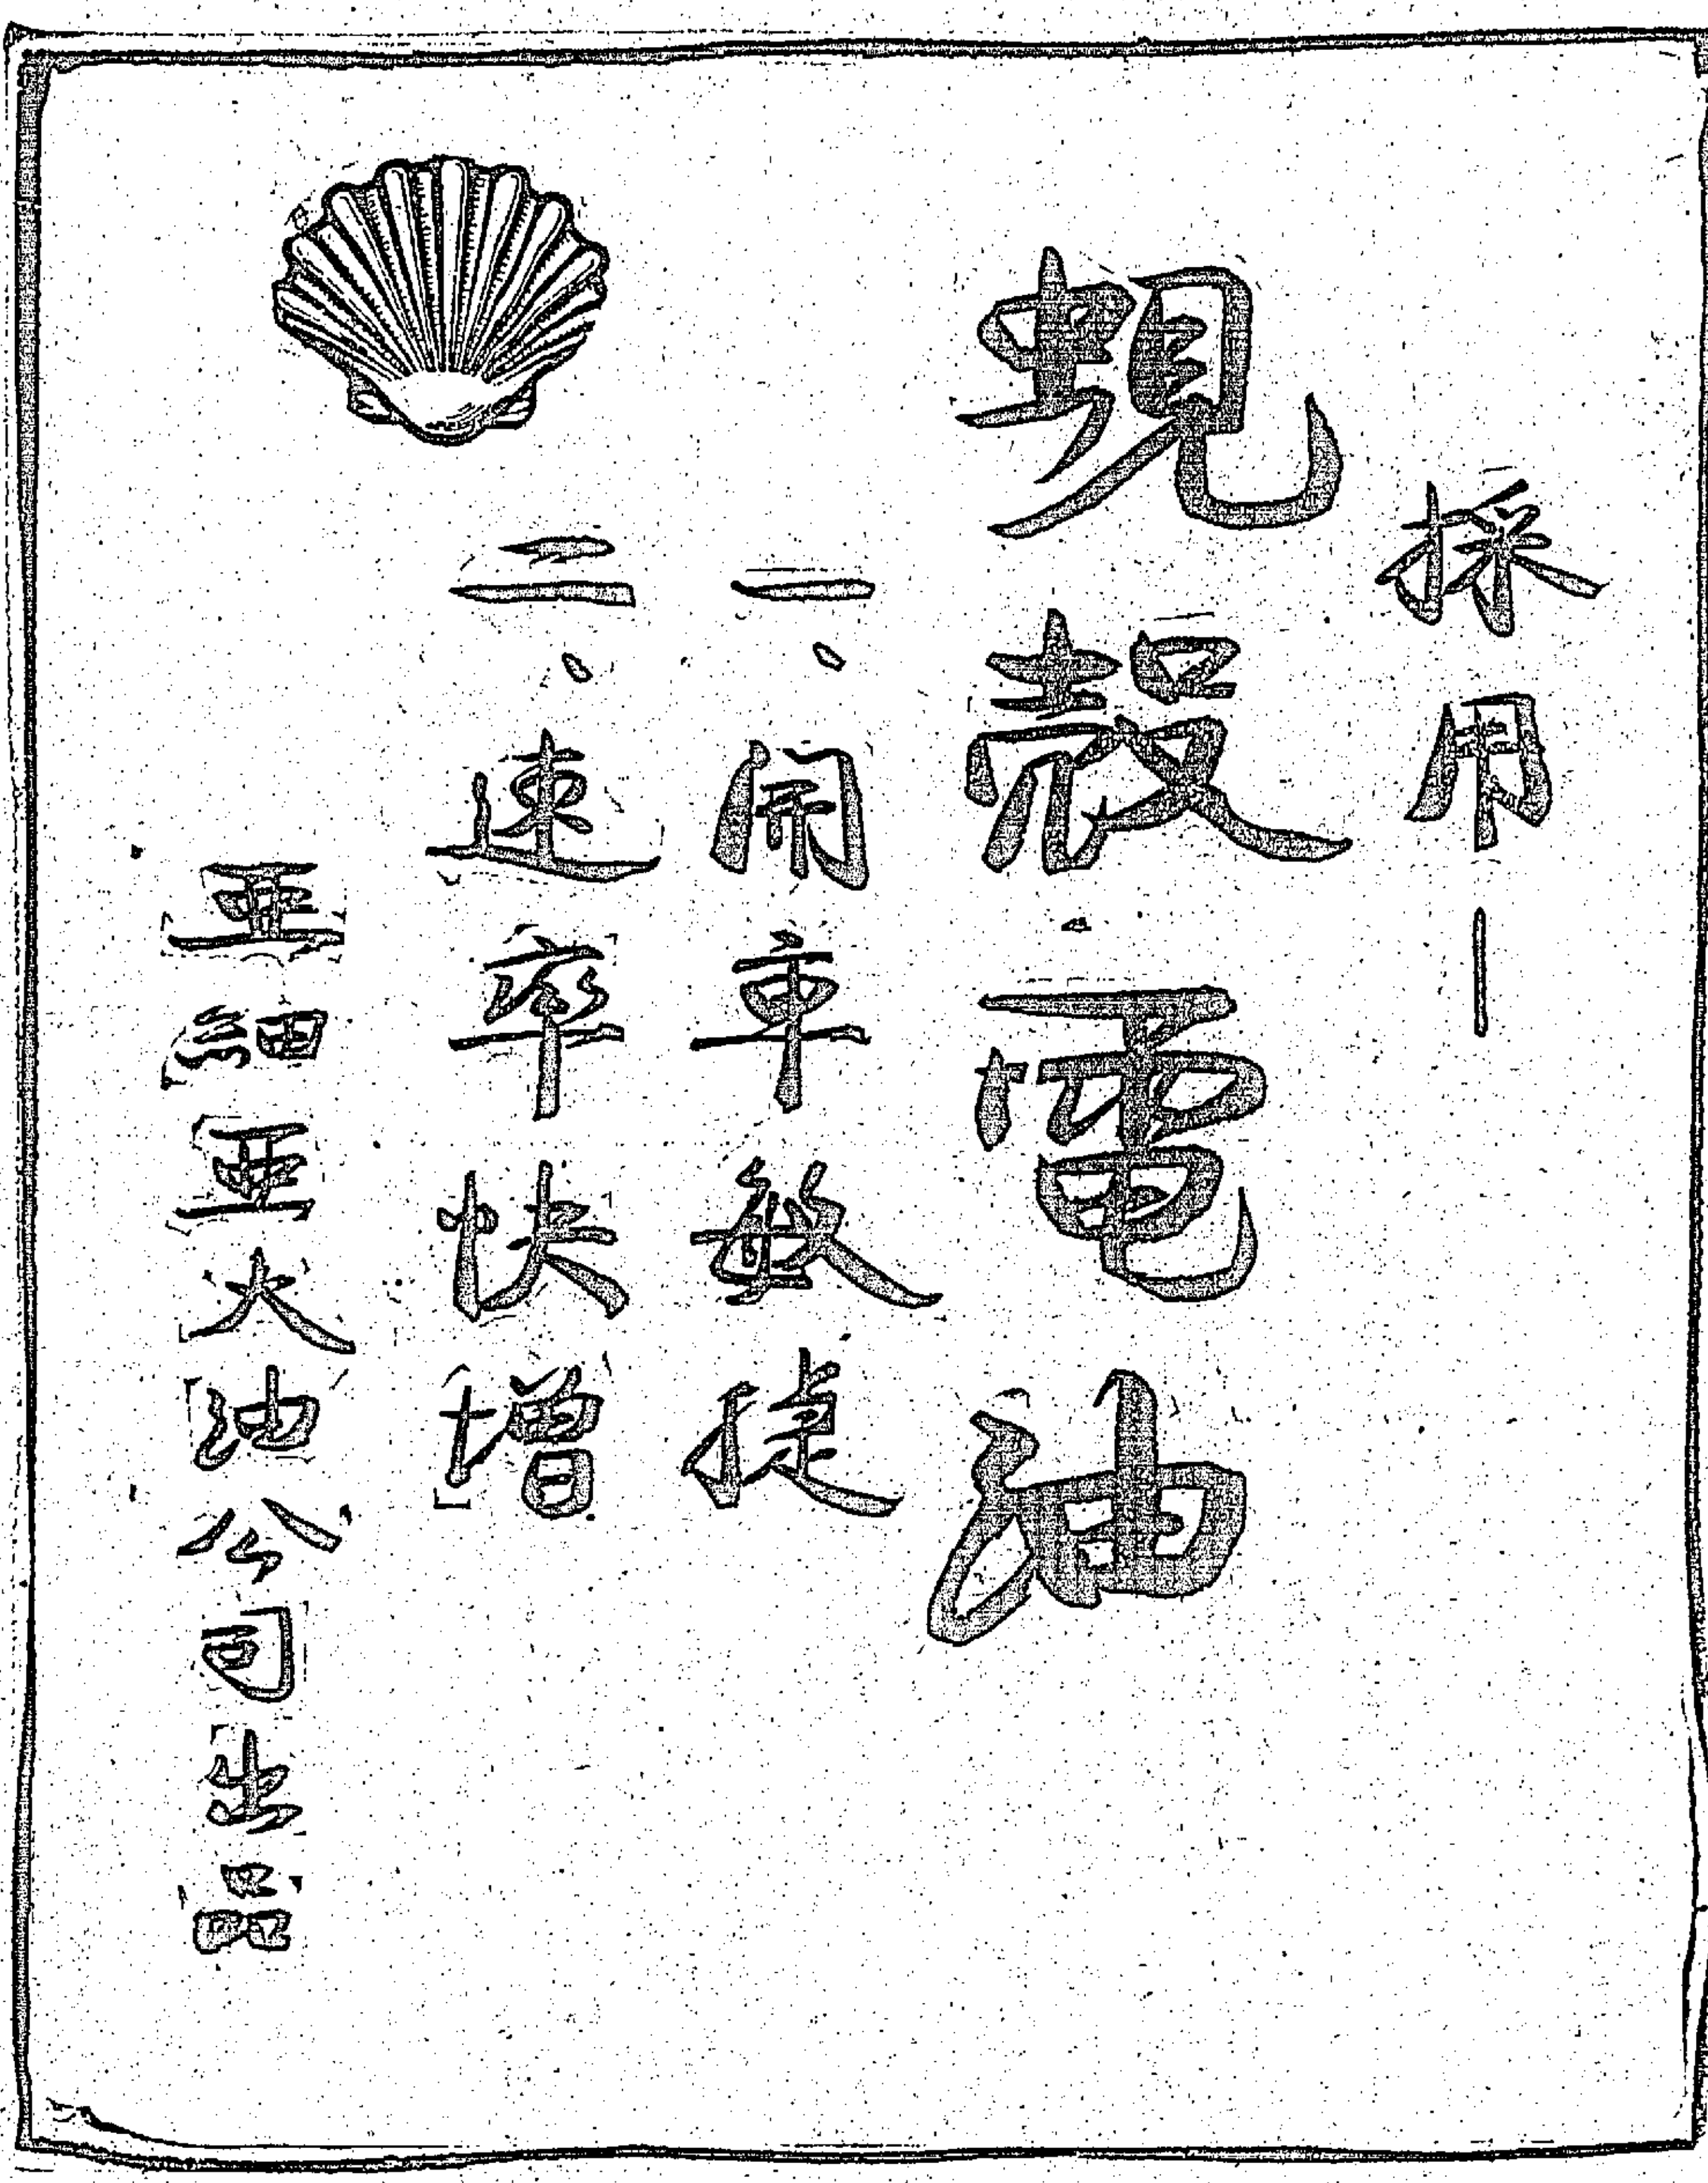 採用—
蜆殼電油
一、開車敏捷
二、速率快增
亞細亞火油公司出品